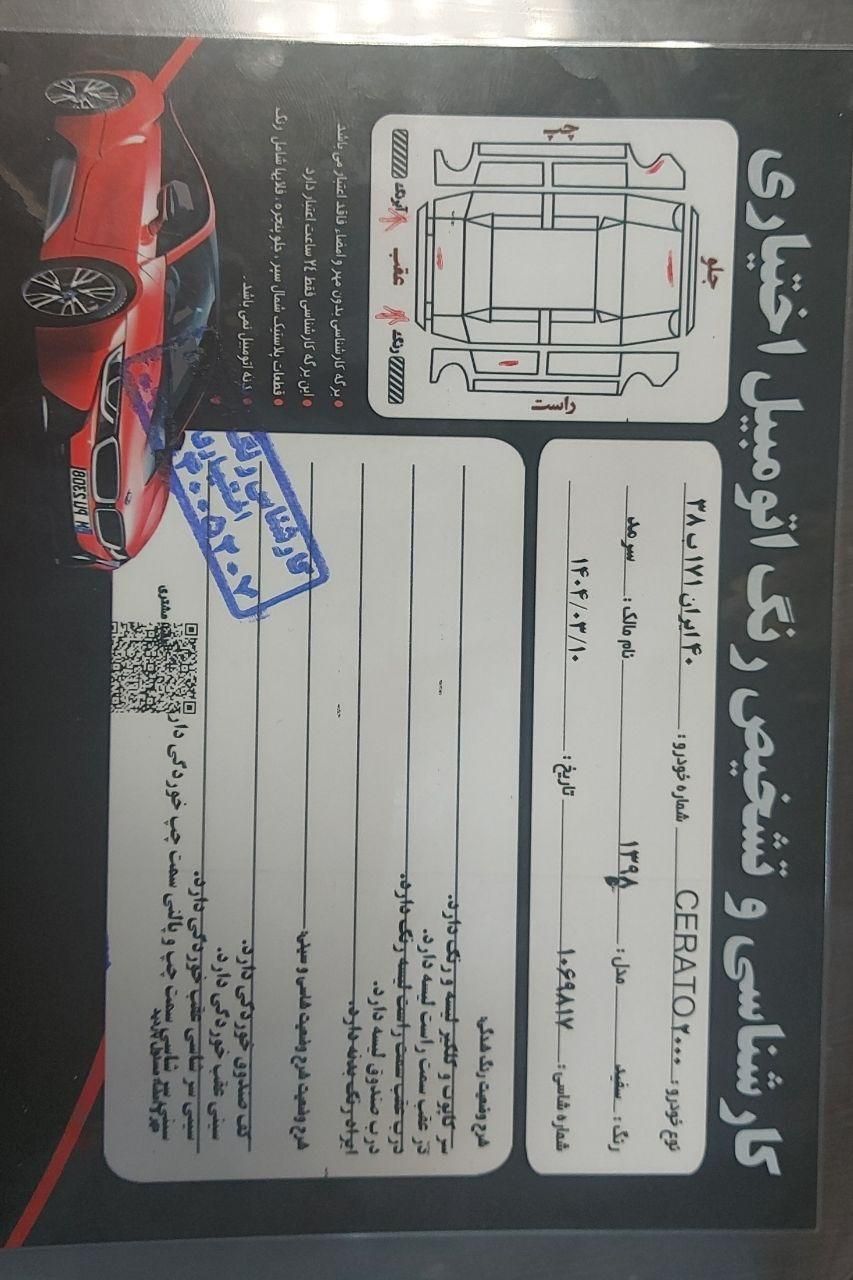 کارشناسی و تشخیص رنگ اتومبیل اختیاری
نوع خودرو: CERATO ۲۰۰۰ شماره خودرو: ۴۰ ایران ۱۷۱ ب ۳۸
رنگ: سفید مدل: ۱۳۹۸ نام مالک: سرمد
شماره شاسی: ۱۰۶۹۸۱۷ تاریخ: ۱۴۰۴/۰۳/۱۰
جلو
چپ
راست
عقب
آبرنگه
رنگه
شرح وضعیت رنگ شدگی:
سر کاپوت و گلگیر لیسه و رنگ دارد.
در عقب سمت راست لیسه دارد.
درب عقب سمت راست لیسه رنگ دارد.
درب صندوق لیسه دارد.
ایراد رنگ بدنه ندارد.
شرح وضعیت شاسی و سینی:
کف صندوق خوردگی دارد.
سینی عقب خوردگی دارد.
سینی سر شاسی عقب خوردگی دارد.
سینی سر شاسی سمت چپ و پالنی سمت چپ خوردگی دارد
مشتری
برگه کارشناسی بدون مهر و امضاء فاقد اعتبار می باشد
این برگه کارشناسی فقط ۲۴ ساعت اعتبار دارد
قطعات پلاستیک شمال سپر ، جلو پنجره ، فلاپها شامل رنگ
بدنه اتومبیل نمی باشد .
کارشناسی رنگ
اختیاری